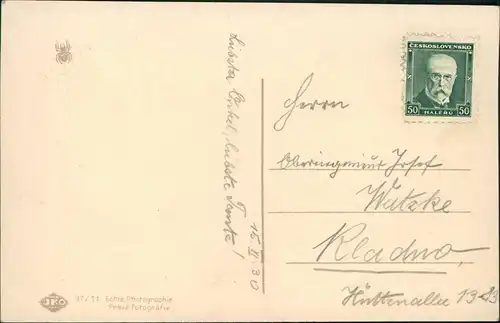 Liebster Onkel, liebste Tante!
15 II 30
ČESKOSLOVENSKO
50 HALÉŘŮ 50
Herrn
Oberingenieur Josef
Watzke
Kladno,
Hüttenallee 1383
JKO
Echte Photographie
Pravá Fotografie